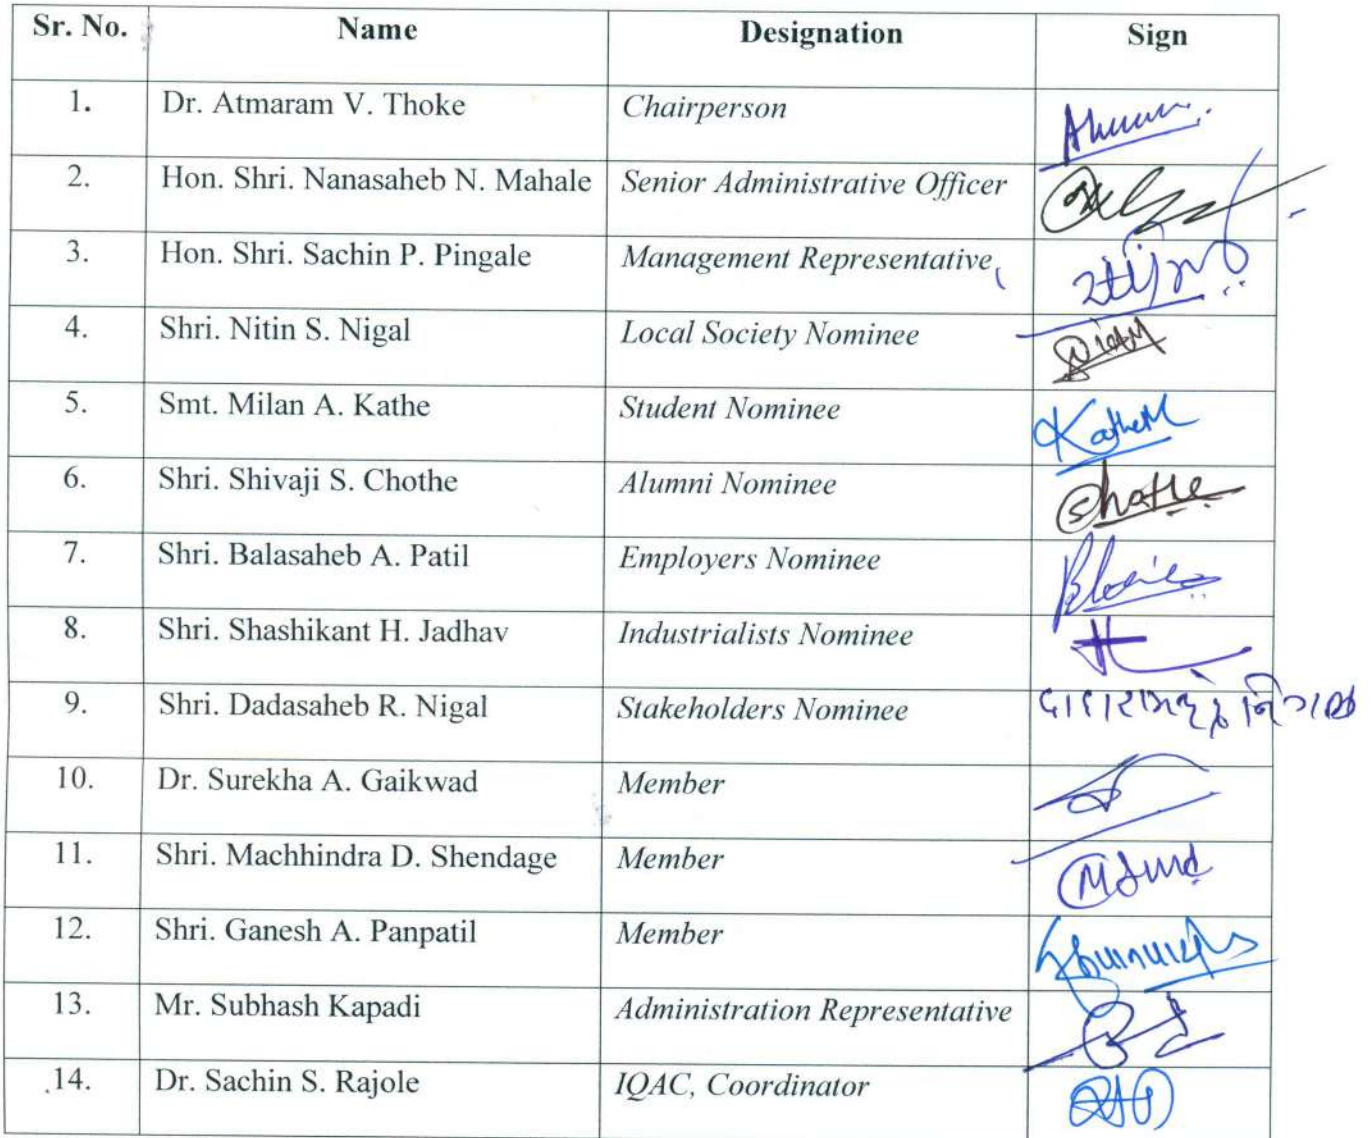 Sr. No. Name Designation Sign
1. Dr. Atmaram V. Thoke Chairperson
2. Hon. Shri. Nanasaheb N. Mahale Senior Administrative Officer
3. Hon. Shri. Sachin P. Pingale Management Representative
4. Shri. Nitin S. Nigal Local Society Nominee
5. Smt. Milan A. Kathe Student Nominee KatheM
6. Shri. Shivaji S. Chothe Alumni Nominee
7. Shri. Balasaheb A. Patil Employers Nominee
8. Shri. Shashikant H. Jadhav Industrialists Nominee
9. Shri. Dadasaheb R. Nigal Stakeholders Nominee
10. Dr. Surekha A. Gaikwad Member
11. Shri. Machhindra D. Shendage Member
12. Shri. Ganesh A. Panpatil Member
13. Mr. Subhash Kapadi Administration Representative
14. Dr. Sachin S. Rajole IQAC, Coordinator